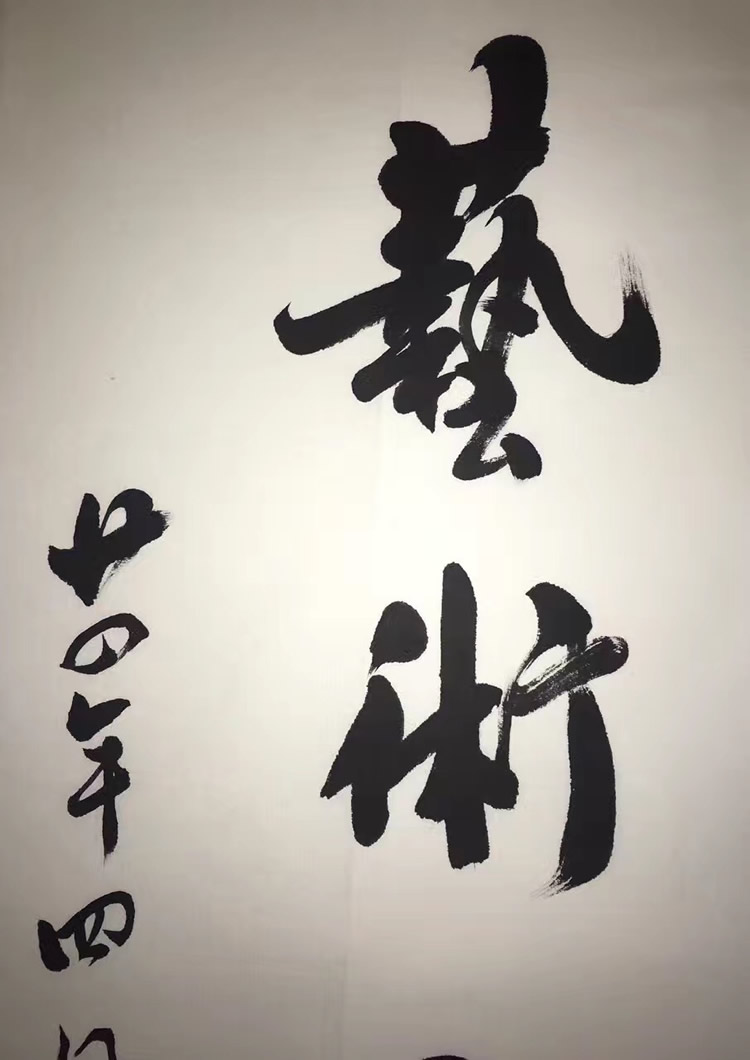 藝術
廿四年四月